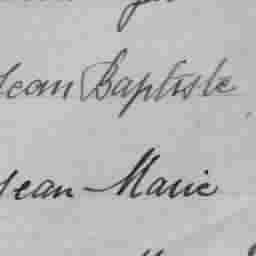 Jean Baptiste
Jean-Marie